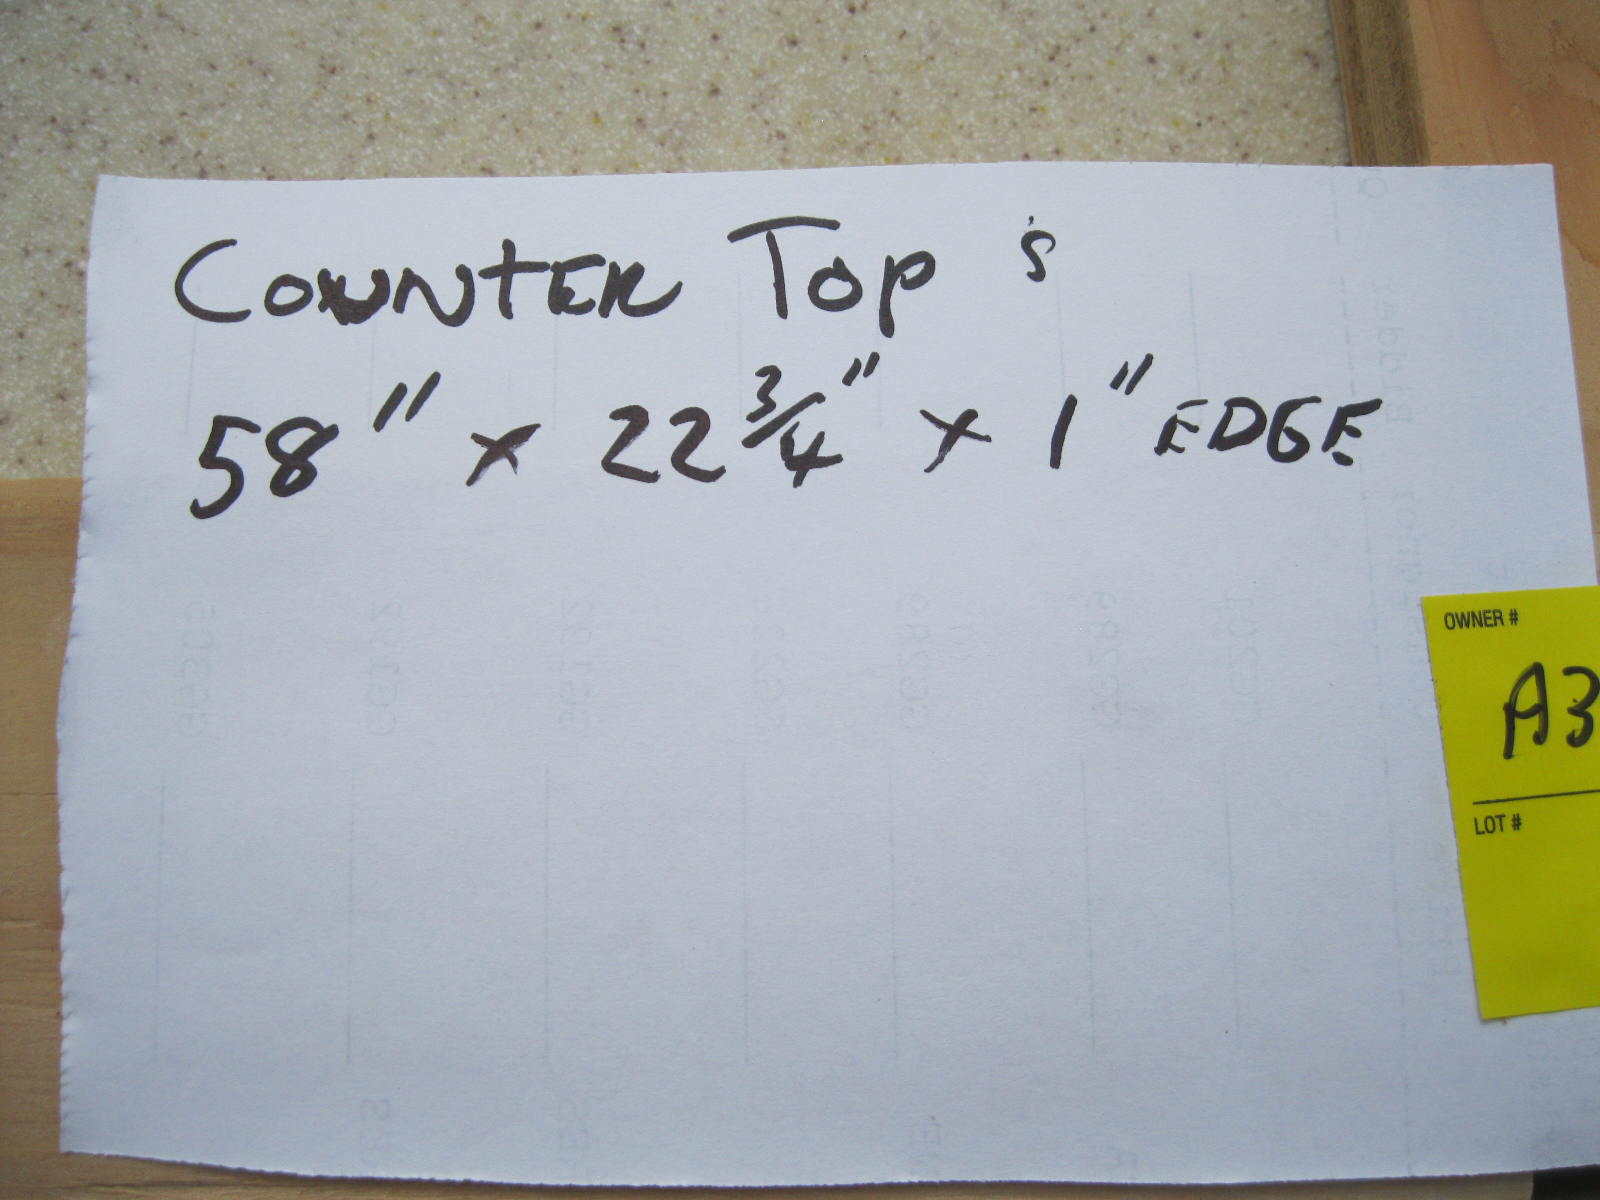 COUNTER TOP 's
58" x 22 3/4" x 1" EDGE
OWNER #
A3
LOT #